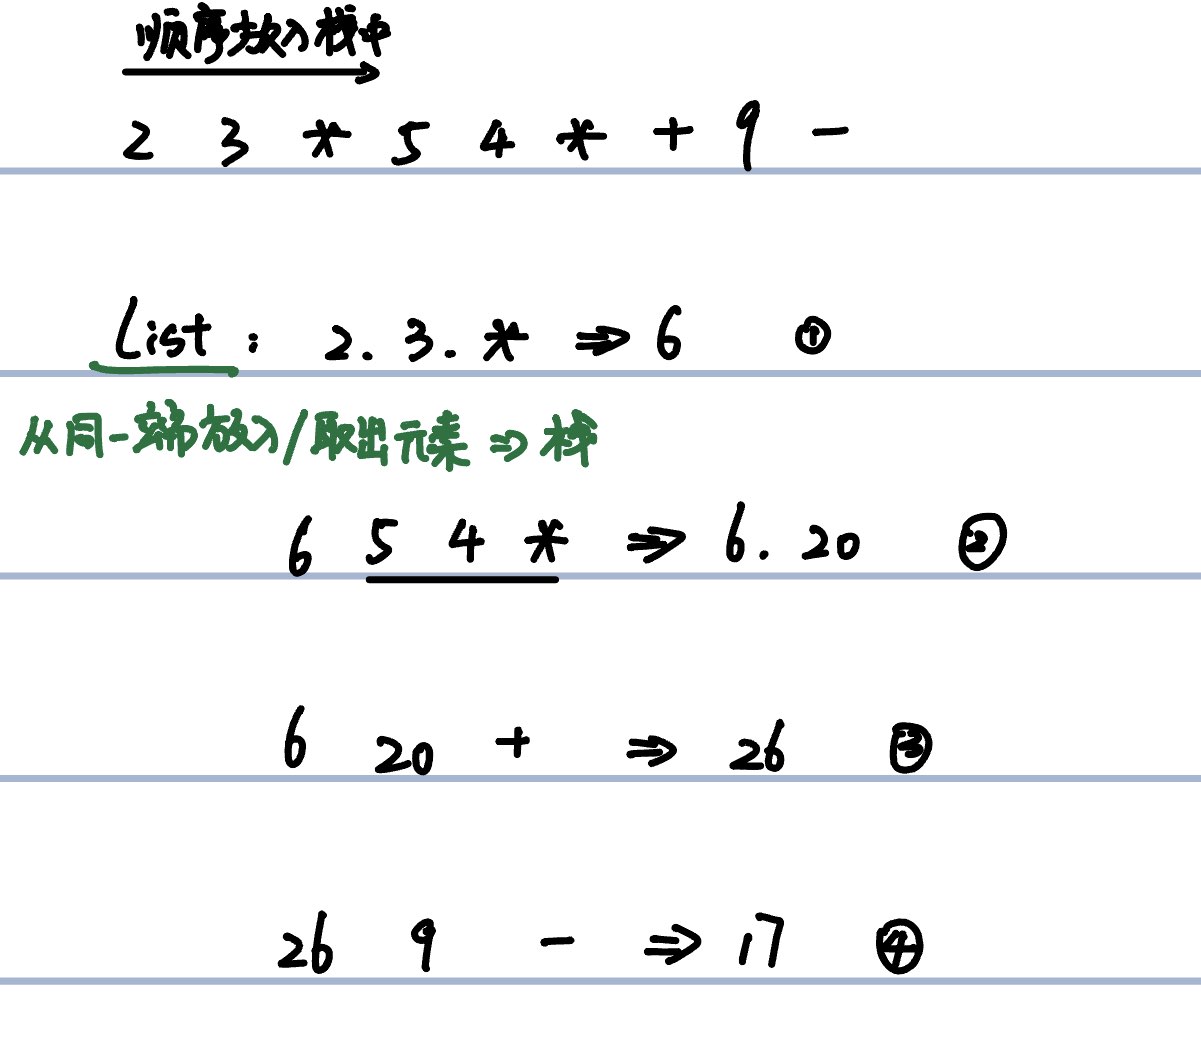 顺序放入栈中
2 3 * 5 4 * + 9 -
List: 2. 3. * ⇒ 6 ①
从同一端放入/取出元素 ⇒ 栈
6 5 4 * ⇒ 6. 20 ②
6 20 + ⇒ 26 ③
26 9 - ⇒ 17 ④